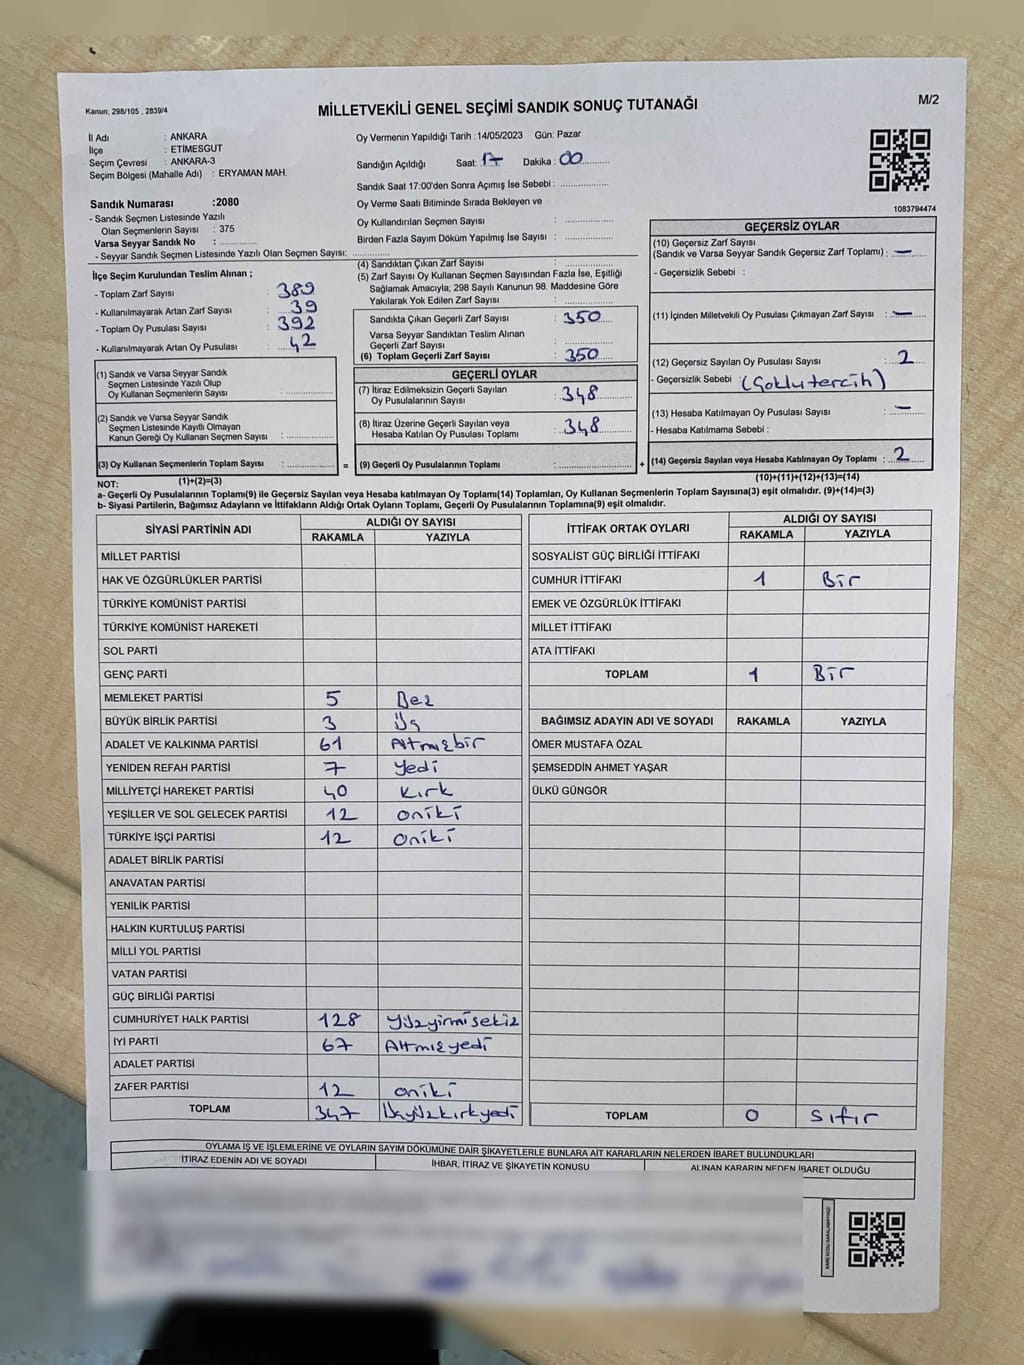 Kanun; 298/105 , 2839/4
MİLLETVEKİLİ GENEL SEÇİMİ SANDIK SONUÇ TUTANAĞI
M/2
İl Adı : ANKARA
İlçe : ETİMESGUT
Seçim Çevresi : ANKARA-3
Seçim Bölgesi (Mahalle Adı) : ERYAMAN MAH.
Oy Vermenin Yapıldığı Tarih : 14/05/2023 Gün: Pazar
Sandığın Açıldığı Saat: 17 Dakika : 00
Sandık Saat 17:00'den Sonra Açımış İse Sebebi :
Oy Verme Saati Bitiminde Sırada Bekleyen ve
Oy Kullandırılan Seçmen Sayısı :
Birden Fazla Sayım Döküm Yapılmış İse Sayısı :
1083794474
Sandık Numarası :2080
- Sandık Seçmen Listesinde Yazılı
Olan Seçmenlerin Sayısı : 375
Varsa Seyyar Sandık No :
- Seyyar Sandık Seçmen Listesinde Yazılı Olan Seçmen Sayısı:
İlçe Seçim Kurulundan Teslim Alınan ;
- Toplam Zarf Sayısı : 389
- Kullanılmayarak Artan Zarf Sayısı : 39
- Toplam Oy Pusulası Sayısı : 392
- Kullanılmayarak Artan Oy Pusulası : 42
(1) Sandık ve Varsa Seyyar Sandık
Seçmen Listesinde Yazılı Olup
Oy Kullanan Seçmenlerin Sayısı :
(2) Sandık ve Varsa Seyyar Sandık
Seçmen Listesinde Kayıtlı Olmayan
Kanun Gereği Oy Kullanan Seçmen Sayısı :
(3) Oy Kullanan Seçmenlerin Toplam Sayısı :
(1)+(2)=(3)
(4) Sandıktan Çıkan Zarf Sayısı :
(5) Zarf Sayısı Oy Kullanan Seçmen Sayısından Fazla İse, Eşitliği
Sağlamak Amacıyla; 298 Sayılı Kanunun 98. Maddesine Göre
Yakılarak Yok Edilen Zarf Sayısı :
Sandıkta Çıkan Geçerli Zarf Sayısı : 350
Varsa Seyyar Sandıktan Teslim Alınan
Geçerli Zarf Sayısı :
(6) Toplam Geçerli Zarf Sayısı : 350
GEÇERLİ OYLAR
(7) İtiraz Edilmeksizin Geçerli Sayılan
Oy Pusulalarının Sayısı : 348
(8) İtiraz Üzerine Geçerli Sayılan veya
Hesaba Katılan Oy Pusulası Toplamı : 348
= (9) Geçerli Oy Pusulalarının Toplamı :
GEÇERSİZ OYLAR
(10) Geçersiz Zarf Sayısı
(Sandık ve Varsa Seyyar Sandık Geçersiz Zarf Toplamı) : —
- Geçersizlik Sebebi :
(11) İçinden Milletvekili Oy Pusulası Çıkmayan Zarf Sayısı : —
(12) Geçersiz Sayılan Oy Pusulası Sayısı : 2
- Geçersizlik Sebebi : (Çoklu tercih)
(13) Hesaba Katılmayan Oy Pusulası Sayısı : —
- Hesaba Katılmama Sebebi :
+ (14) Geçersiz Sayılan veya Hesaba Katılmayan Oy Toplamı : 2
(10)+(11)+(12)+(13)=(14)
NOT:
a- Geçerli Oy Pusulalarının Toplamı(9) ile Geçersiz Sayılan veya Hesaba katılmayan Oy Toplamı(14) Toplamları, Oy Kullanan Seçmenlerin Toplam Sayısına(3) eşit olmalıdır. (9)+(14)=(3)
b- Siyasi Partilerin, Bağımsız Adayların ve İttifakların Aldığı Ortak Oyların Toplamı, Geçerli Oy Pusulalarının Toplamına(9) eşit olmalıdır.
SİYASİ PARTİNİN ADI ALDIĞI OY SAYISI
RAKAMLA YAZIYLA
MİLLET PARTİSİ
HAK VE ÖZGÜRLÜKLER PARTİSİ
TÜRKİYE KOMÜNİST PARTİSİ
TÜRKİYE KOMÜNİST HAREKETİ
SOL PARTİ
GENÇ PARTİ
MEMLEKET PARTİSİ 5 Beş
BÜYÜK BİRLİK PARTİSİ 3 Üç
ADALET VE KALKINMA PARTİSİ 61 Altmışbir
YENİDEN REFAH PARTİSİ 7 Yedi
MİLLİYETÇİ HAREKET PARTİSİ 40 Kırk
YEŞİLLER VE SOL GELECEK PARTİSİ 12 oniki
TÜRKİYE İŞÇİ PARTİSİ 12 oniki
ADALET BİRLİK PARTİSİ
ANAVATAN PARTİSİ
YENİLİK PARTİSİ
HALKIN KURTULUŞ PARTİSİ
MİLLİ YOL PARTİSİ
VATAN PARTİSİ
GÜÇ BİRLİĞİ PARTİSİ
CUMHURİYET HALK PARTİSİ 128 Yüzyirmisekiz
İYİ PARTİ 67 Altmışyedi
ADALET PARTİSİ
ZAFER PARTİSİ 12 oniki
TOPLAM 347 Üçyüzkırkyedi
İTTİFAK ORTAK OYLARI ALDIĞI OY SAYISI
RAKAMLA YAZIYLA
SOSYALİST GÜÇ BİRLİĞİ İTTİFAKI
CUMHUR İTTİFAKI 1 Bir
EMEK VE ÖZGÜRLÜK İTTİFAKI
MİLLET İTTİFAKI
ATA İTTİFAKI
TOPLAM 1 Bir
BAĞIMSIZ ADAYIN ADI VE SOYADI RAKAMLA YAZIYLA
ÖMER MUSTAFA ÖZAL
ŞEMSEDDİN AHMET YAŞAR
ÜLKÜ GÜNGÖR
TOPLAM 0 Sıfır
OYLAMA İŞ VE İŞLEMLERİNE VE OYLARIN SAYIM DÖKÜMÜNE DAİR ŞİKAYETLERLE BUNLARA AİT KARARLARIN NELERDEN İBARET BULUNDUKLARI
İTİRAZ EDENİN ADI VE SOYADI İHBAR, İTİRAZ VE ŞİKAYETİN KONUSU ALINAN KARARIN NEDEN İBARET OLDUĞU